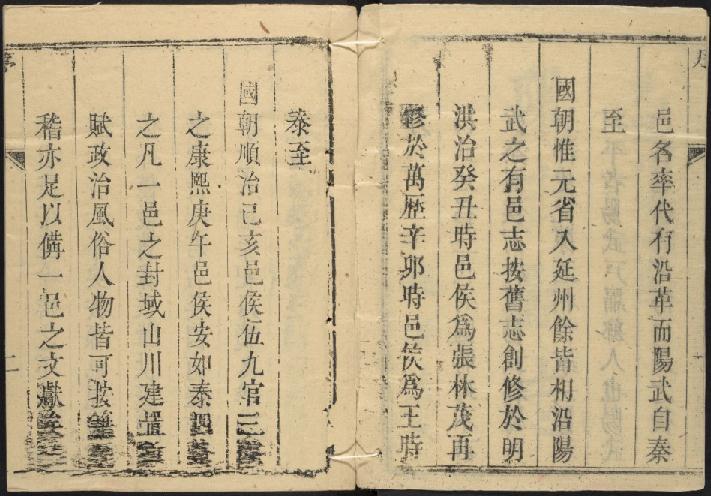 序
邑名率代有沿革而陽武自秦
至
國朝惟元省入延州餘皆相沿陽
武之有邑志按舊志創修於明
洪治癸丑時邑侯爲張林茂再
修於萬歷辛卯時邑侯爲王時
泰至
國朝順治己亥邑侯伍九官三修
之康熙庚午邑侯安如泰四
之凡一邑之封域山川建置
賦政治風俗人物皆可按
稽亦足以備一邑之文獻矣
序